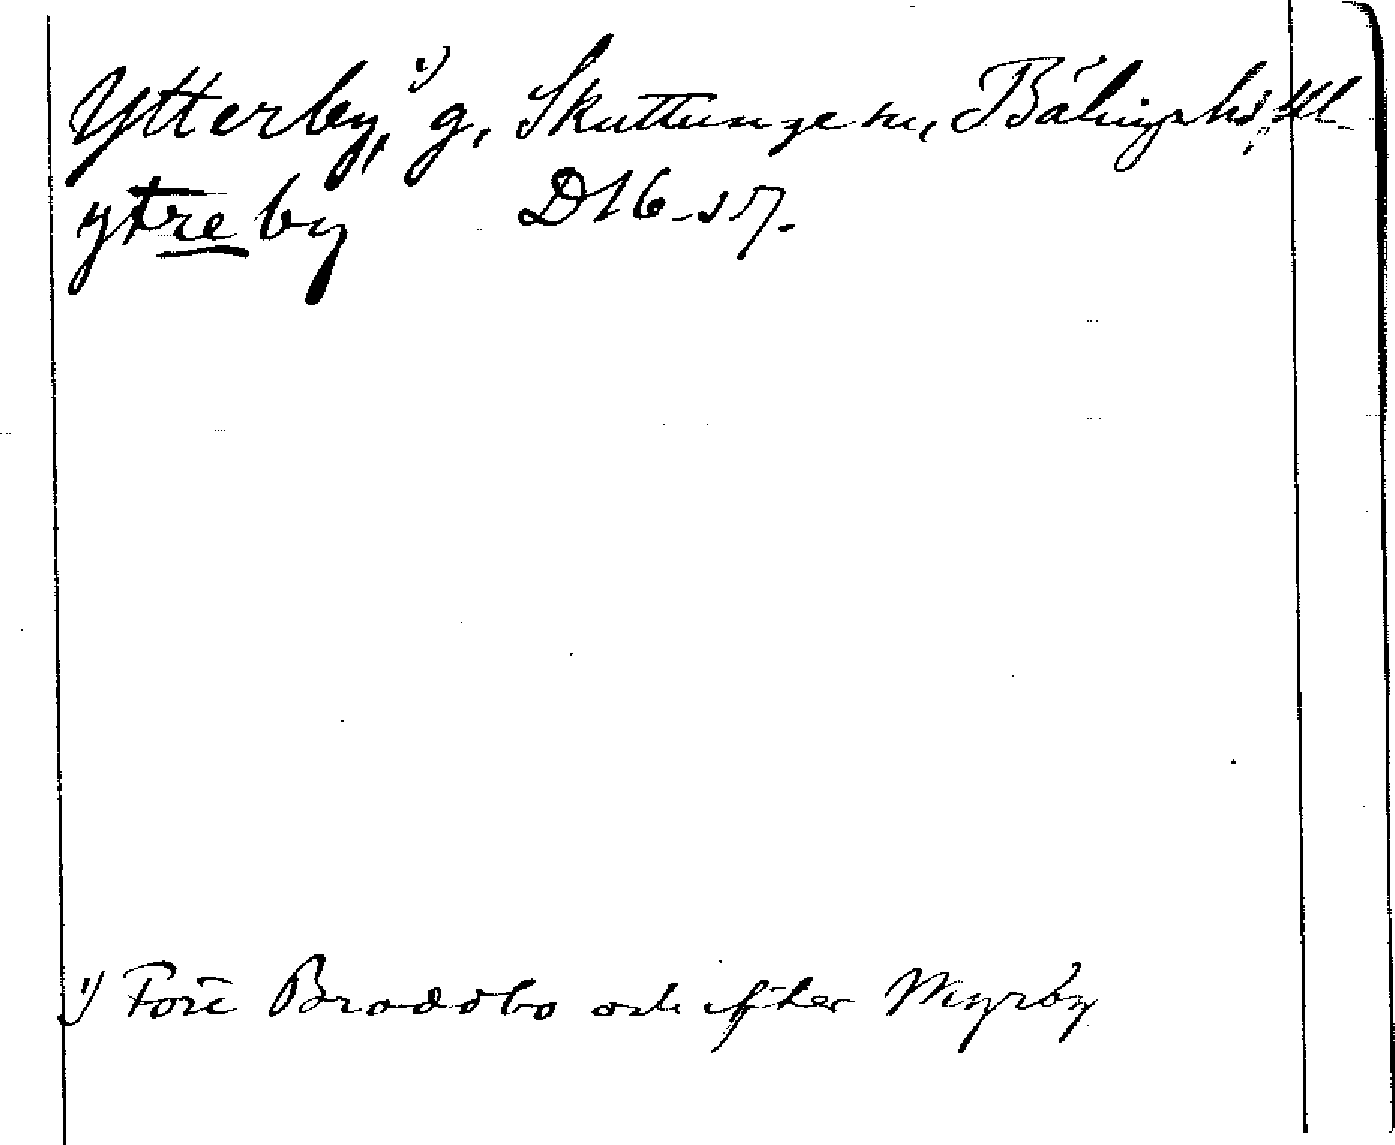 Ytterby,¹⁾ g, Skuttunge sn, Bälings hd, Upl.
ytreby D16-s17.
¹⁾ Före Broddbo och efter Myrby